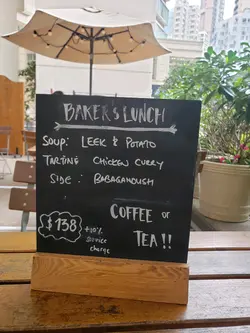 BAKER's LUNCH
SOUP: LEEK & POTATO
TARTINE CHICKEN CURRY
SIDE: BABAGANOUSH
COFFEE or
TEA!!
$138
+10% service charge